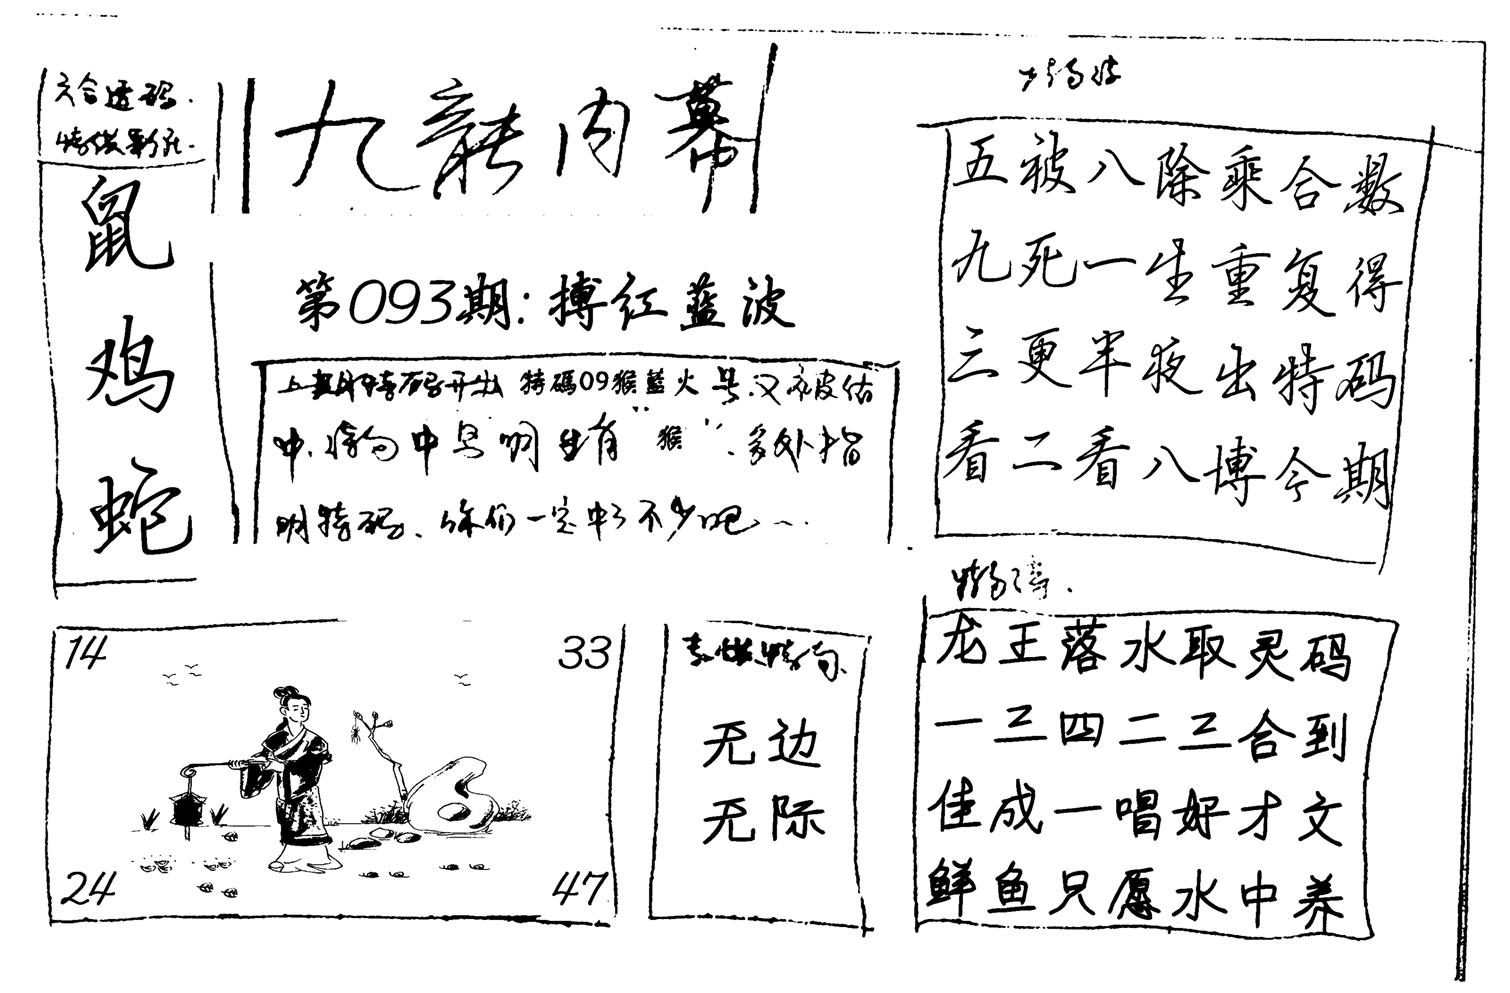 六合透码.
九龍内幕
鼠
鸡
蛇
第093期:搏红蓝波
上期特码开出 特碼09猴藍火号.又被估
中.特句中号明生肖“猴”.多处指
明特码、你们一定中了不少吧
五被八除乘合数
九死一生重复得
三更半夜出特码
看二看八博今期
14
33
24
47
无边
无际
龙王落水取灵码
一三四二三合到
佳成一唱好才文
鲜鱼只愿水中养